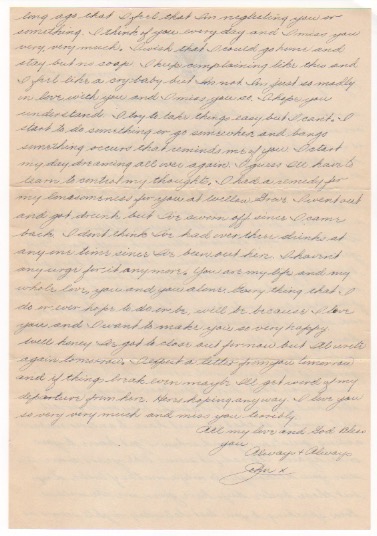 long ago that I feel that I'm neglecting you or
something. I think of you every day and I miss you
very, very much. I wish that I could go home and
stay but no soap. I keep complaining like this and
I feel like a cry baby but I'm not I'm just so madly
in love with you and I miss you so. I hope you
understand. I try to take things easy but I can't. I
start to do something or go somewhere and bang
something occurs that reminds me of you I start
my day dreaming all over again. I guess I'll have to
learn to control my thoughts. I had a remedy for
my lonesomeness for you at Willow Grove I went out
and got drunk but I've sworn off since I came
back. I don't think I've had over three drinks at
any one time since I've been out here. I haven't
any urge for it any more. You are my life and my
whole love, you and you alone. Every thing that I
do or ever hope to do or be, will be because I love
you and I want to make you so very happy
Well honey I've got to close out for now but I'll write
again tomorrow. I expect a letter from you tomorrow
and if things break even maybe I'll get word of my
departure from here. Here's hoping anyway. I love you
so very very much and miss you terribly
All my love and God Bless
you
Always & Always
John x